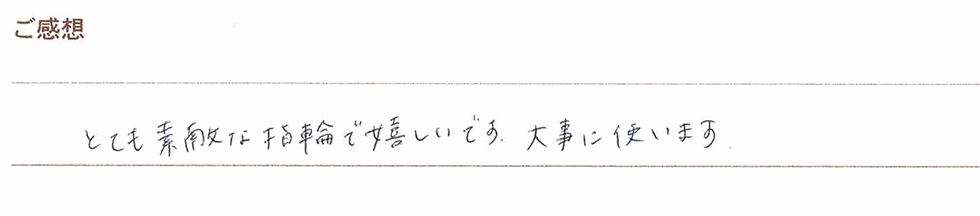 ご感想
とても素敵な指輪で嬉しいです. 大事に使います.